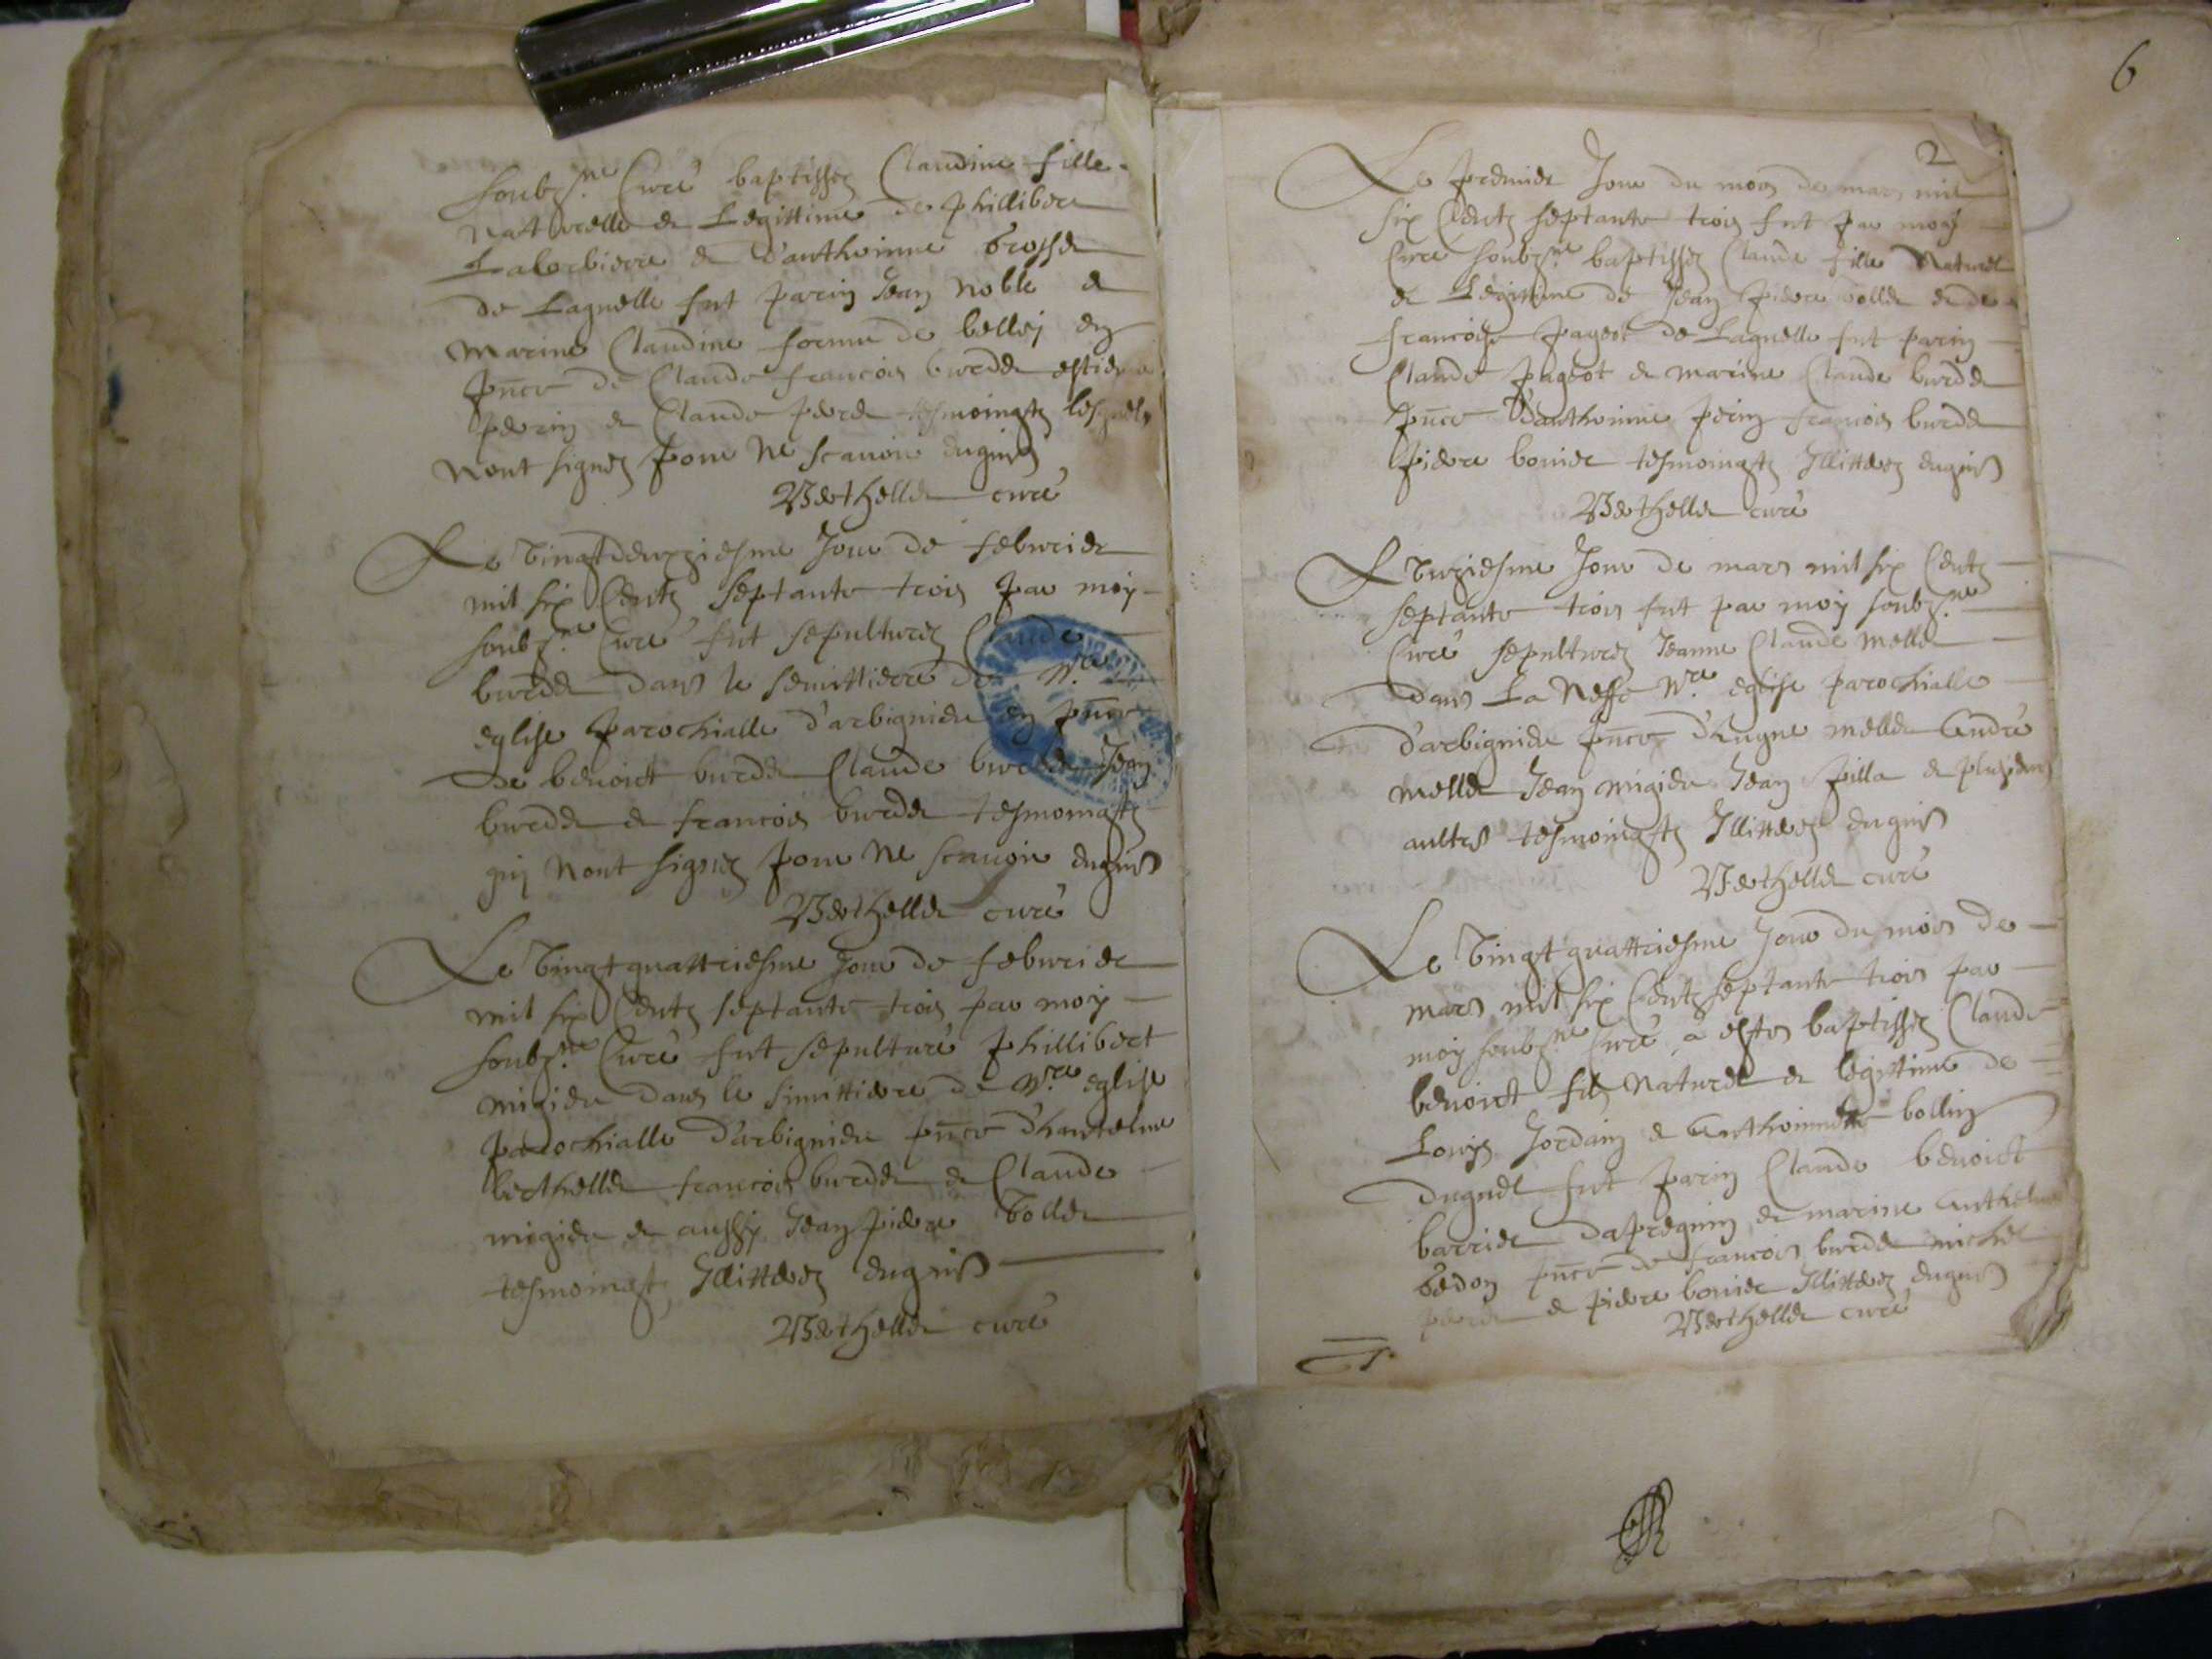 soubz.ne Curé baptissez Claudine fille
naturelle et Legittime de phillibert
Laborbiere et d'anthoinne brosse
de Lagnelle fut parin Jean noble et
marine Claudine de bellej en
pnce de Claude francois burdet estiene
perin et Claude tesmoingtz lesquels
nont signez pour ne scauoir enquis
Berthellet curé
Le vingtdeuxziesme Jour de febvrier
mil six Centz septante trois par moy
soubz.ne Curé fut sepulturez Claude
burdet dans le semittiere de nre
eglise parochialle d'arbignieu en pnce
de benoict burdet Claude burdet Jean
burdet et francois burdet tesmoingtz
quj nont signez pour ne scauoir enquis
Berthellet curé
Le vingtquattriesme Jour de febvrier
mil six Centz septante trois par moy
soubz.ne Curé fut sepulturé phillibert
migieu dans le simittiere de nre eglise
parochialle d'arbignieu pnce d'hantelme
berthellet francois burdet et Claude
migieu et aussy Jean piere vollet
tesmoingt Illitterez enquis
Berthellet curé
6
2
Le premier Jour du mois de mars mil
six Centz septante trois fut par moy
Curé soubz.ne baptissez Claude fille naturel
et Legittime de Jean piere vollet et de
francoise pageot de Lagnelle fut parin
Claude pageot et marine Claude burdet
pnce d'anthoinne perin francois burdet
piere bouier tesmoingtz Illitterez enquis
Berthellet curé
L vnziesme Jour de mars mil six Centz
septante trois fut par moy soubz.ne
Curé sepulturez Jeanne Claude mellet
dans La neffe nre eglise parochialle
d'arbignieu pnce d'hugue mellet André
mellet Jean migieu Jean pilla et plusieurs
aultres tesmoingtz Illitterez enquis
Berthellet curé
Le vingt quattriesme Jour du mois de
mars mil six Centz septante trois par
moy soubz.ne Curé a estes baptissez Claude
benoict filz naturel et legittime de
Louys Jordain et Anthoinette bollin
duquel fut parin Claude benoict
barrier dapregnin et marine Anthelme
bedon pnce de francois burdet michel
et piere bouier Illitterez enquis
Berthellet curé